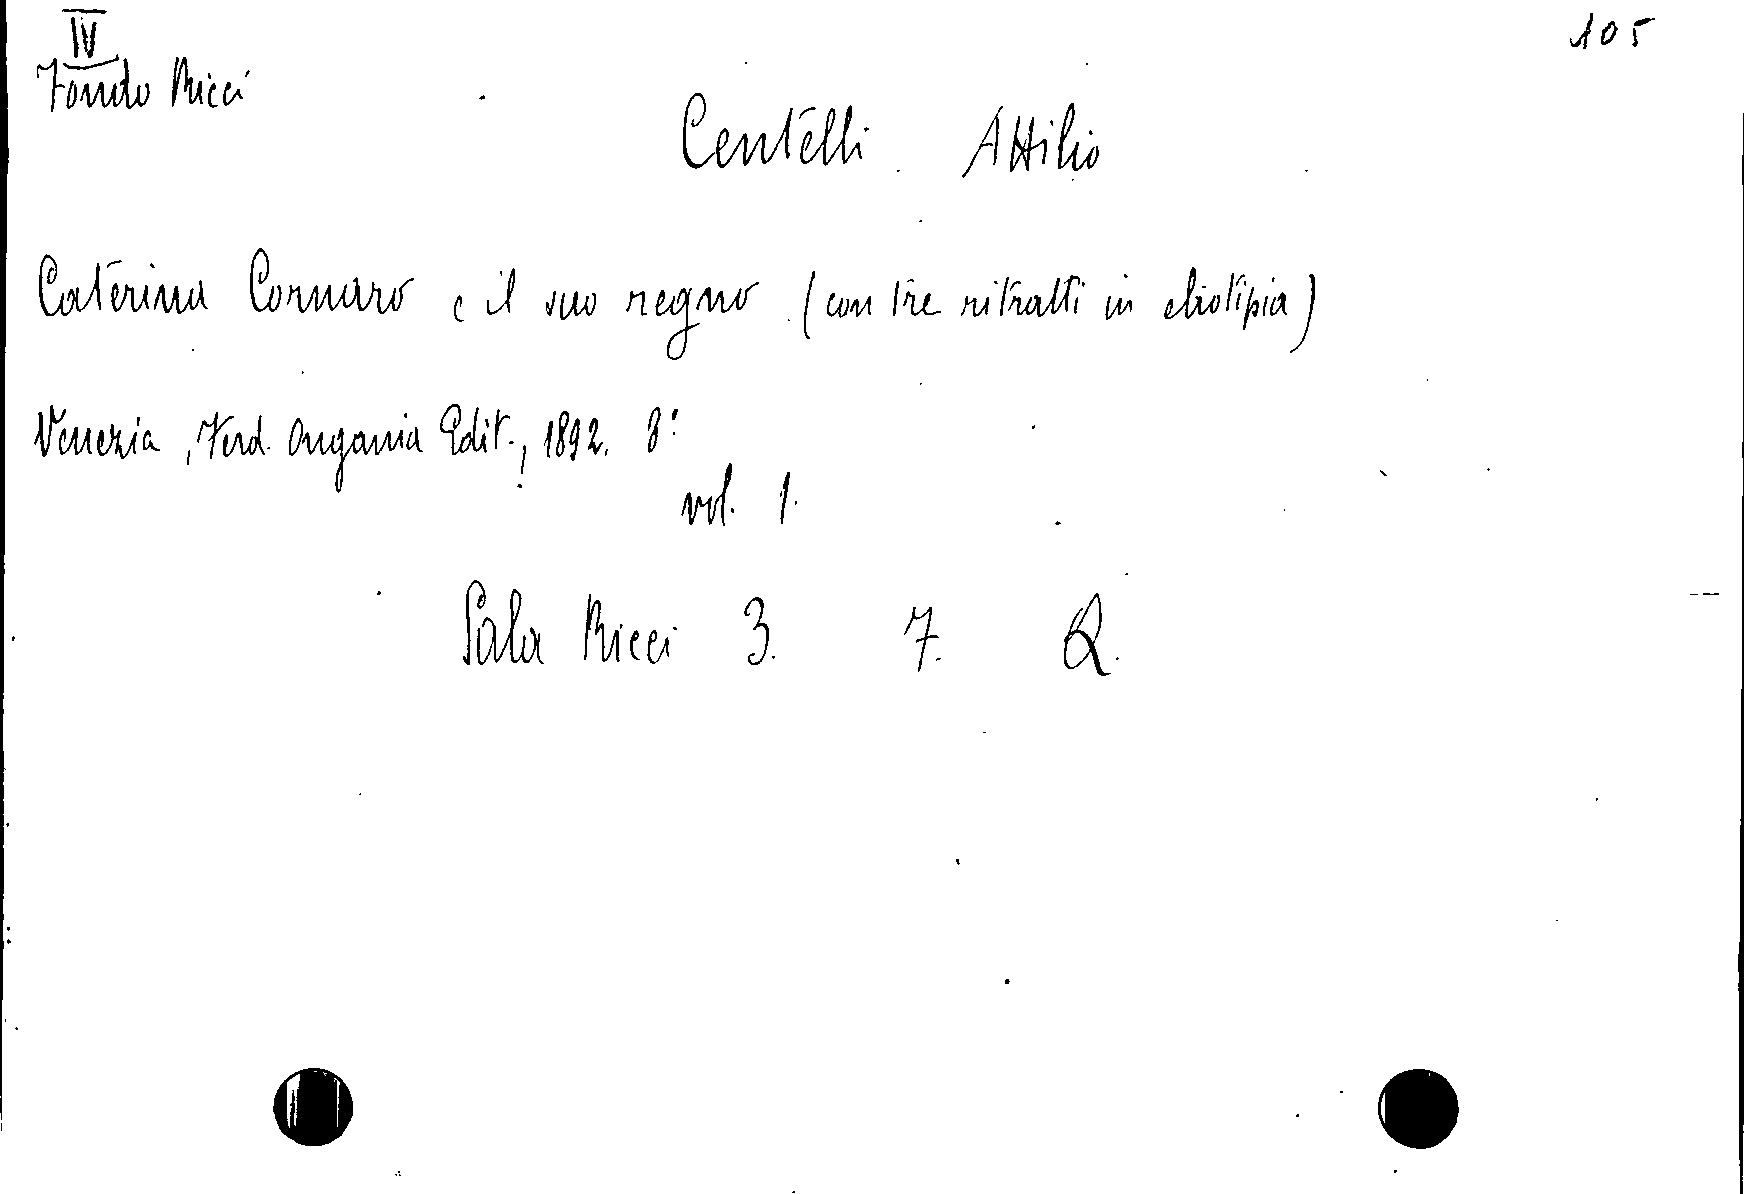 IV
105
Fondo Ricci
Centelli Attilio
Caterina Cornaro e il suo regno (con tre ritratti in eliotipia)
Venezia, Ferd. Ongania Edit., 1892. 8°
vol. 1.
Sala Ricci 3. 7. Q.